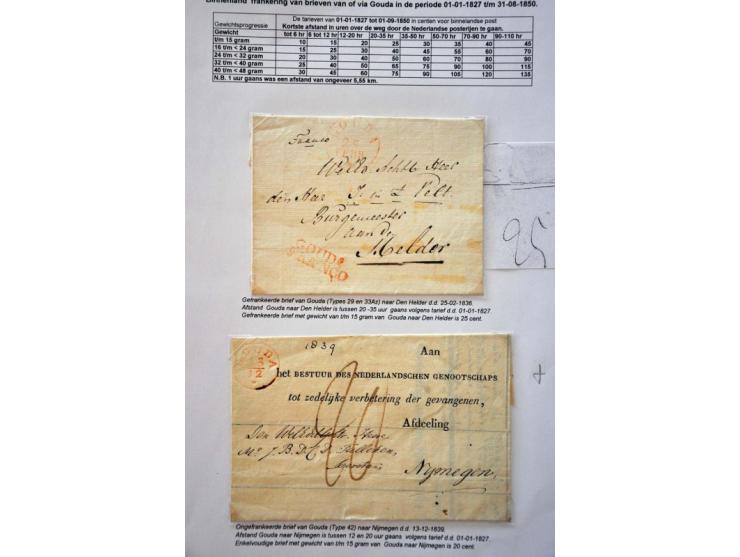 Binnenland frankering van brieven van of via Gouda in de periode 01-01-1827 t/m 31-08-1850.
De tarieven van 01-01-1827 tot 01-09-1850 in centen voor binnenlandse post
Gewichtsprogressie Kortste afstand in uren over de weg door de Nederlandse posterijen te gaan.
Gewicht tot 6 hr 6 tot 12 hr 12-20 hr 20-35 hr 35-50 hr 50-70 hr 70-90 hr 90-110 hr
t/m 15 gram 10 15 20 25 30 35 40 45
16 t/m < 24 gram 15 20 30 40 45 55 60 70
24 t/m < 32 gram 20 30 40 50 60 70 80 90
32 t/m < 40 gram 25 40 50 65 75 90 100 115
40 t/m < 48 gram 30 45 60 75 90 105 120 135
N.B. 1 uur gaans was een afstand van ongeveer 5,55 km.
Franco
Welld. Achtb Heer
den Heer
Pelt.
Burgemeester
aan de
Helder
GOUDA
FRANCO
25
Gefrankeerde brief van Gouda (Types 29 en 33Az) naar Den Helder d.d. 25-02-1836.
Afstand Gouda naar Den Helder is tussen 20 -35 uur gaans volgens tarief d.d. 01-01-1827.
Gefrankeerde brief met gewicht van t/m 15 gram van Gouda naar Den Helder is 25 cent.
1839
Aan
het BESTUUR DES NEDERLANDSCHEN GENOOTSCHAPS
tot zedelijke verbetering der gevangenen,
Afdeeling
20
Den
Nijmegen
Ongefrankeerde brief van Gouda (Type 42) naar Nijmegen d.d. 13-12-1839.
Afstand Gouda naar Nijmegen is tussen 12 en 20 uur gaans volgens tarief d.d. 01-01-1827.
Enkelvoudige brief met gewicht van t/m 15 gram van Gouda naar Nijmegen is 20 cent.